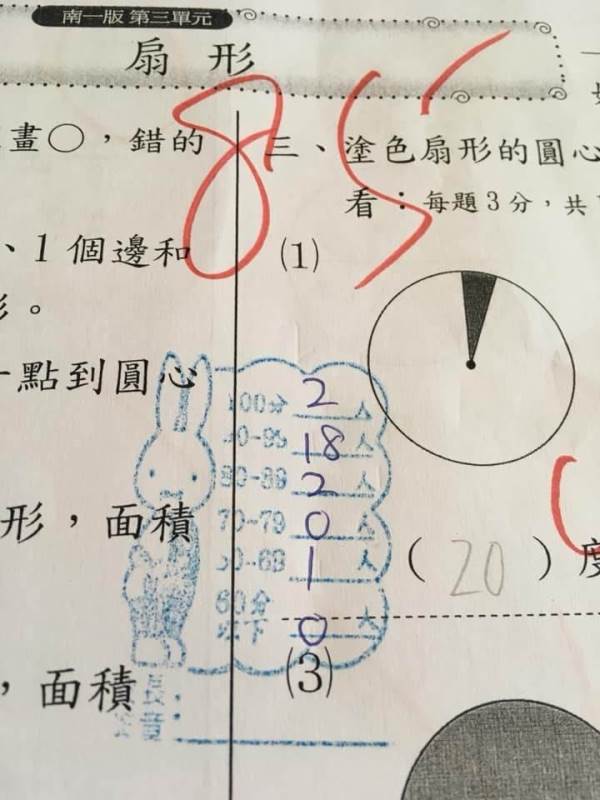 南一版 第三單元
扇形
85
畫○，錯的
、1個邊和
。
點到圓心
形，面積
，面積
三、塗色扇形的圓心
看：每題3分，共
(1)
(20)度
(3)
100分 2 人
90-99 18 人
80-89 2 人
70-79 0 人
60-69 1 人
60分以下 0 人